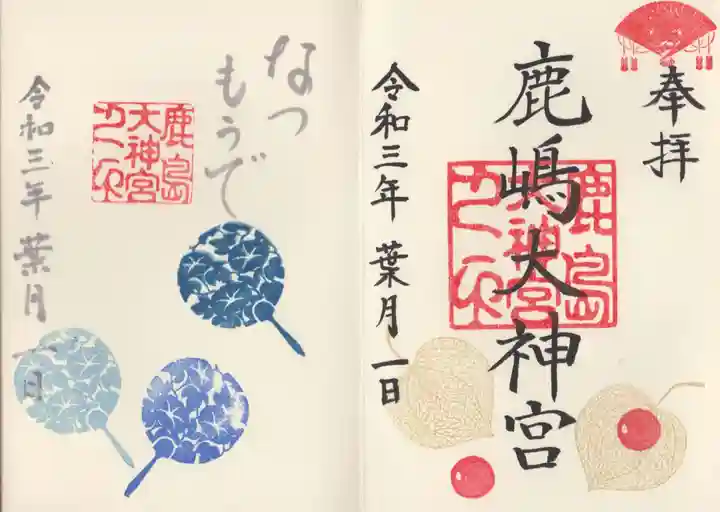 奉拝
鹿嶋大神宮
鹿島
大神宮
令和三年 葉月一日
なつ
もうで
鹿島
大神宮
令和三年 葉月一日